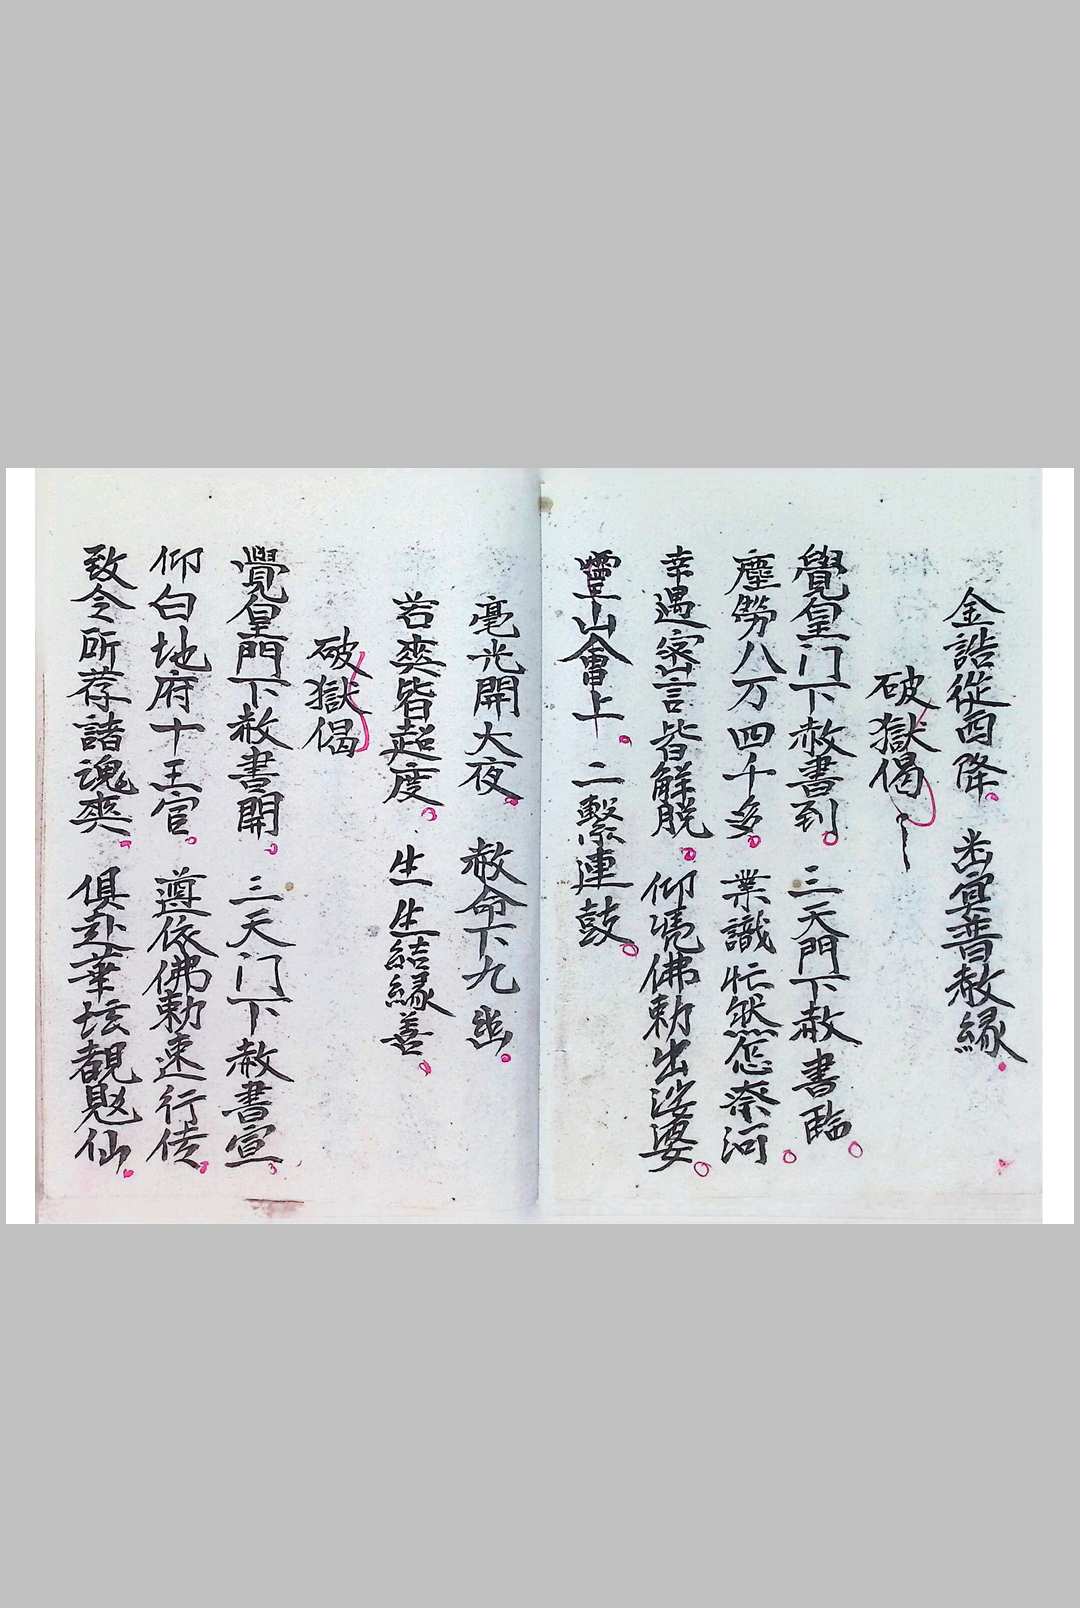 金誥從西降。 宣普赦緣。
破獄偈
覺皇门下赦書到。三天門下赦書臨。
塵勞八万四千多。業識忙然奈河。
幸遇密言皆解脱。仰憑佛勅出婆。
靈山會上。二繫連鼓。
毫光開大夜。赦命下九幽。
若爽皆超度。生生結緣善。
破獄偈
覺皇門下赦書開。三天门下赦書宣。
仰白地府十王官。遵依佛勅速行傳。
致令所荐諸魂爽。俱赴華坛觀仙。